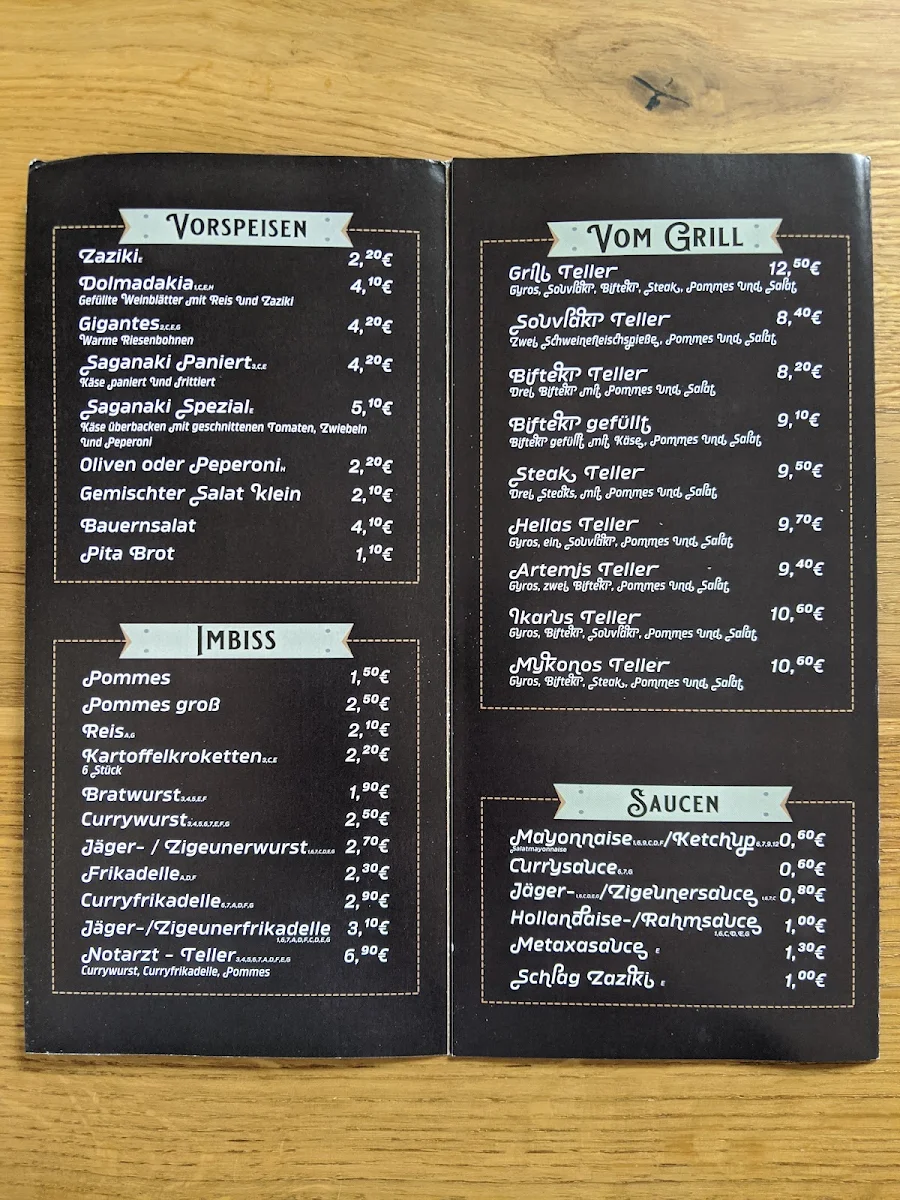 Vorspeisen
Zaziki 2,20€
Dolmadakia 4,10€
Gefüllte Weinblätter mit Reis und Zaziki
Gigantes 4,20€
Warme Riesenbohnen
Saganaki Paniert 4,20€
Käse paniert und frittiert
Saganaki Spezial 5,10€
Käse überbacken mit geschnittenen Tomaten, Zwiebeln
und Peperoni
Oliven oder Peperoni 2,20€
Gemischter Salat klein 2,10€
Bauernsalat 4,10€
Pita Brot 1,10€
Imbiss
Pommes 1,50€
Pommes groß 2,50€
Reis A,G 2,10€
Kartoffelkroketten 2,20€
6 Stück
Bratwurst 3,4,5,E,F 1,90€
Currywurst 3,4,5,6,7,E,F,G 2,50€
Jäger- / Zigeunerwurst 2,70€
Frikadelle A,D,F 2,30€
Curryfrikadelle 6,7,A,D,F,G 2,90€
Jäger-/Zigeunerfrikadelle 3,10€
1,6,7,A,D,F,C,D,E,G
Notarzt - Teller 3,4,5,6,7,A,D,F,E,G 6,90€
Currywurst, Curryfrikadelle, Pommes
Vom Grill
Grill Teller 12,50€
Gyros, Souvlaki, Bifteki, Steak, Pommes und Salat
Souvlaki Teller 8,40€
Zwei Schweinefleischspieße, Pommes und Salat
Bifteki Teller 8,20€
Drei Bifteki mit Pommes und Salat
Bifteki gefüllt 9,10€
Bifteki gefüllt mit Käse, Pommes und Salat
Steak Teller 9,50€
Drei Steaks, mit Pommes und Salat
Hellas Teller 9,70€
Gyros, ein Souvlaki, Pommes und Salat
Artemis Teller 9,40€
Gyros, zwei Bifteki, Pommes und Salat
Ikarus Teller 10,60€
Gyros, Bifteki, Souvlaki, Pommes und Salat
Mykonos Teller 10,60€
Gyros, Bifteki, Steak, Pommes und Salat
Saucen
Mayonnaise 1,6,9,C,D,F/Ketchup 6,7,9,12 0,60€
Salatmayonnaise
Currysauce 6,7,G 0,60€
Jäger-/Zigeunersauce 0,80€
Hollandaise-/Rahmsauce 1,00€
1,6,C,D,E,G
Metaxasauce E 1,30€
Schlag Zaziki E 1,00€